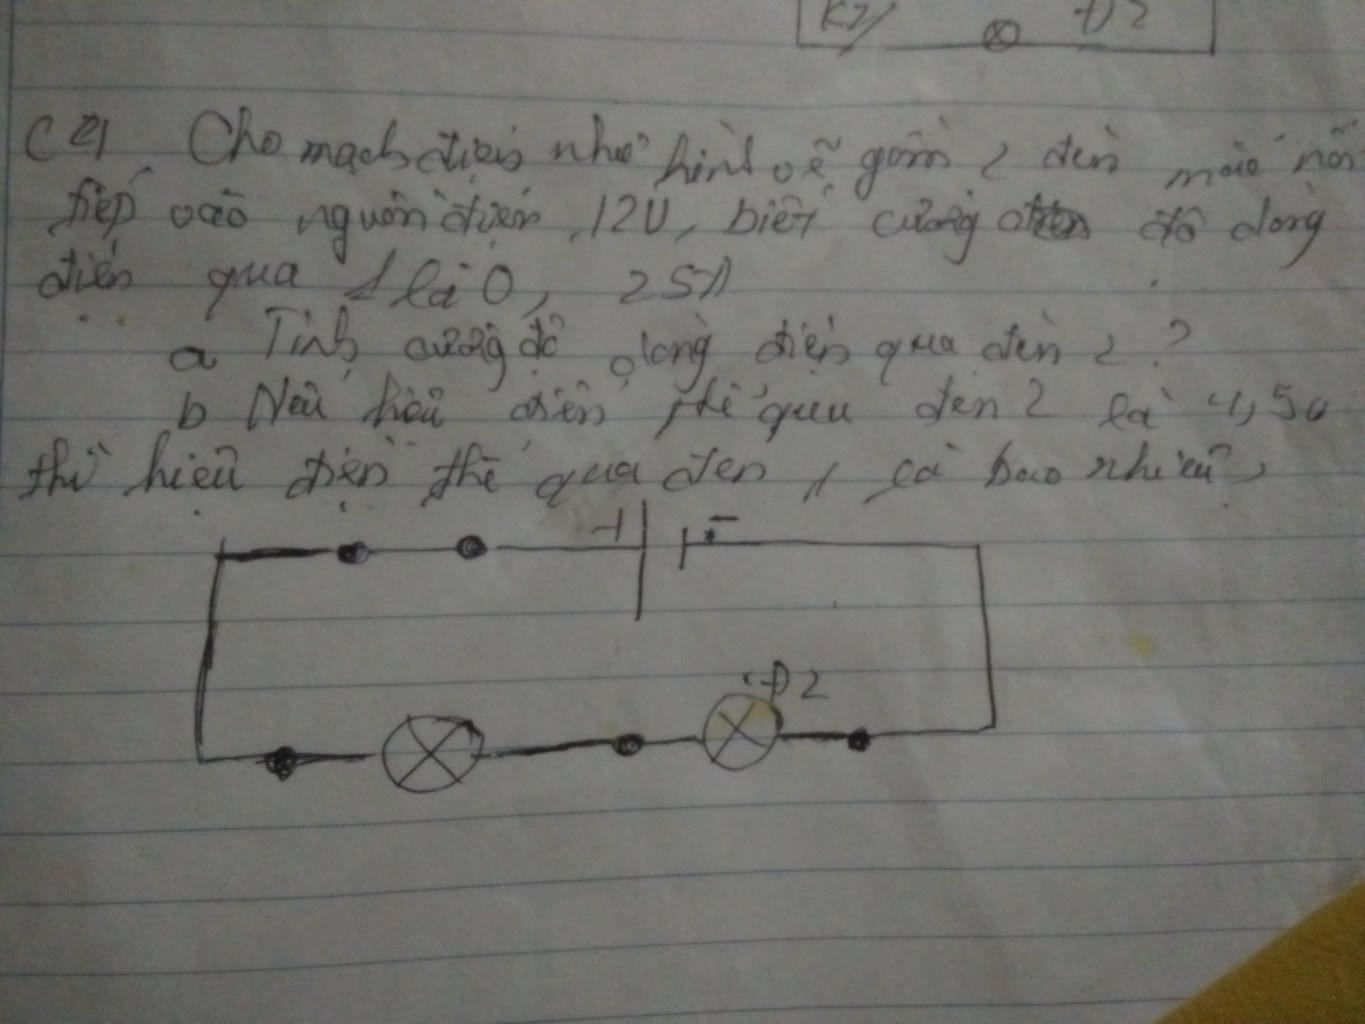 K2 Đ2
C4 Cho mạch điện như hình vẽ gồm 2 đèn mắc nối
tiếp vào nguồn điện 12V, biết cường độ dòng
điện qua 1 là 0, 25A
a Tính cường độ dòng điện qua đèn 2 ?
b Nếu hiệu điện thế qua đèn 2 là 4,5v
thì hiệu điện thế qua đèn 1 là bao nhiêu?
+ -
Đ2